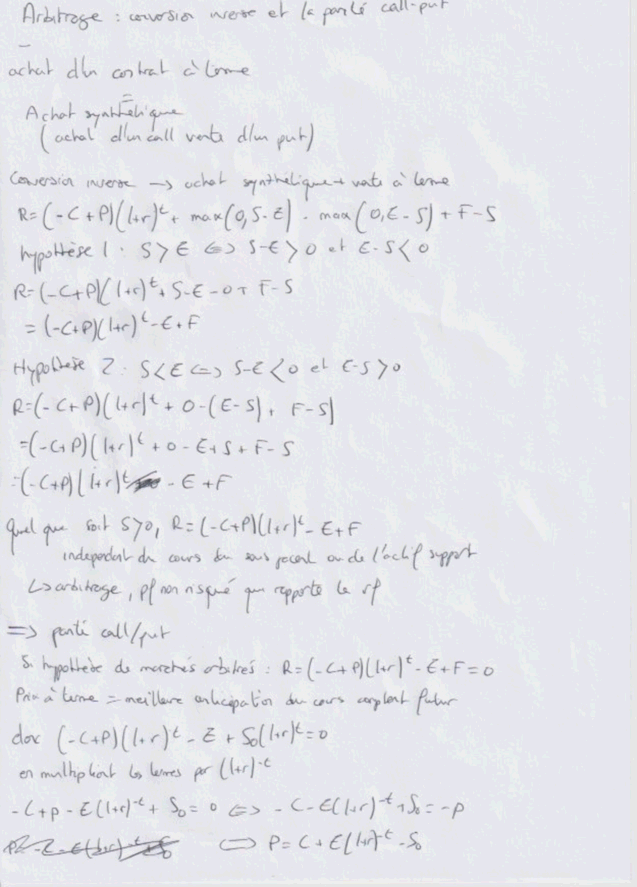 Arbitrage : conversion inverse et la parité call-put
–
achat d'un contrat à terme
=
Achat synthétique
(achat d'un call vente d'un put)
Conversion inverse → achat synthétique + vente à terme
R=(-C+P)(1+r)^t + max(0,S-E) - max(0,E-S) + F-S
hypothèse 1 : S>E ⇔ S-E>0 et E-S<0
R=(-C+P)(1+r)^t + S-E-0+F-S
= (-C+P)(1+r)^t - E+F
Hypothèse 2 : S<E ⇔ S-E<0 et E-S>0
R=(-C+P)(1+r)^t + 0-(E-S) + F-S
=(-C+P)(1+r)^t + 0 - E+S + F-S
=(-C+P)(1+r)^t - E+F
Quel que soit S>0, R=(-C+P)(1+r)^t - E+F
indépendant du cours du sous jacent ou de l'actif support
↳ arbitrage, pf non risqué qui rapporte le rf
⇒ parité call/put
Si hypothèse de marchés arbitrés : R=(-C+P)(1+r)^t - E+F=0
Prix à terme = meilleure anticipation du cours comptant futur
donc (-C+P)(1+r)^t - E + S₀(1+r)^t=0
en multipliant les termes par (1+r)^-t
-C+P - E(1+r)^-t + S₀ = 0 ⇔ -C-E(1+r)^-t+S₀=-P
⇔ P=C+E(1+r)^-t - S₀